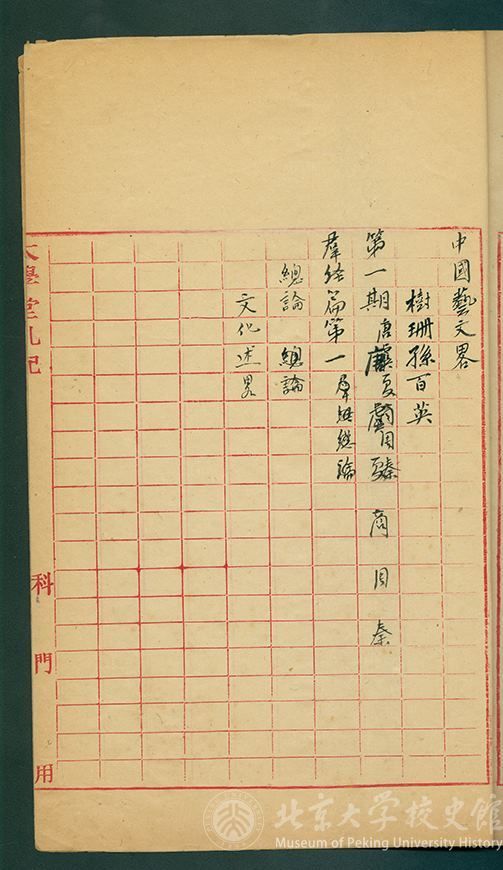 中國藝文畧
樹珊孫百英
第一期唐虞夏商周秦
羣經篇第一羣經總論
總論 總論
文化述畧
大學堂札記
科
門
用
北京大学校史館
Museum of Peking University History